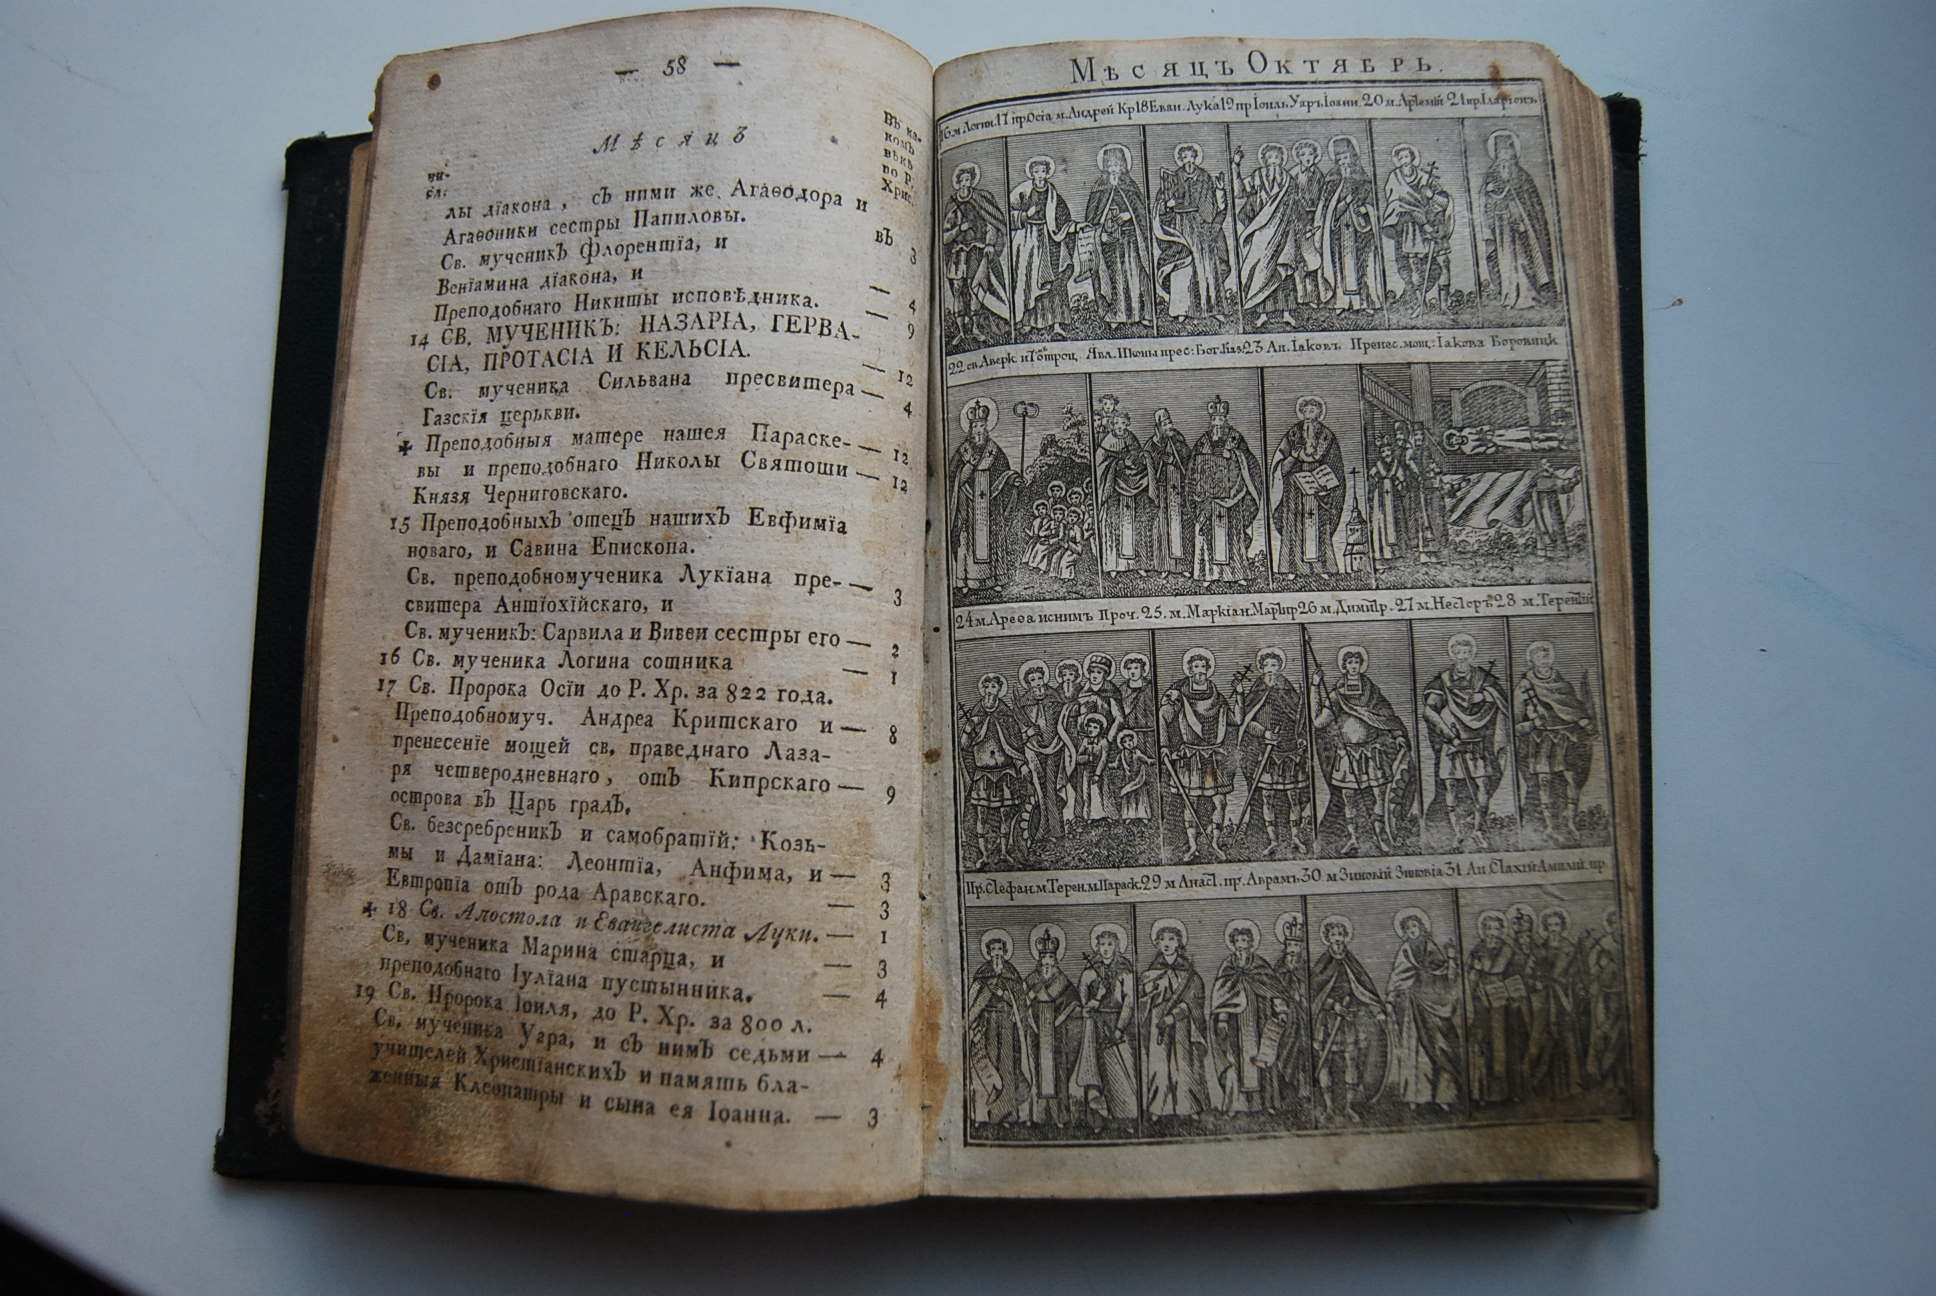 — 58 —
Мѣсяцъ
чи-
сл:
Въ ка-
комъ
вѣкѣ
по р.
Хрис.
лы дїакона, съ ними же, Агаѳодора и
Агаѳоники сестры Папиловы.
Св. мученикъ Флорентїа, и въ 3
Венїамина дїакона, и — 4
Преподобнаго Никиты исповѣдника. — 9
14 СВ. МУЧЕНИКЪ: НАЗАРІА, ГЕРВА-
СІА, ПРОТАСІА И КЕЛЬСІА. — 12
Св. мученика Сильвана пресвитера — 4
Газскїя церькви.
✠ Преподобныя матере нашея Параске- — 12
вы и преподобнаго Николы Святоши — 12
Князя Черниговскаго.
15 Преподобныхъ отецъ нашихъ Евфимїа
новаго, и Савина Епископа.
Св. преподобномученика Лукїана пре- — 3
свитера Антїохїйскаго, и
Св. мученикъ: Сарвила и Вивеи сестры его — 2
16 Св. мученика Логина сотника — 1
17 Св. Пророка Осїи до Р. Хр. за 822 года.
Преподобномуч. Андреа Критскаго и — 8
пренесенїе мощей св. праведнаго Лаза-
ря четверодневнаго, отъ Кипрскаго — 9
острова въ Царь градъ.
Св. безсребреникъ и самобратїй: Козь-
мы и Дамїана: Леонтїа, Анфима, и — 3
Евтропїа отъ рода Аравскаго. — 3
✠ 18 Св. Апостола и Евангелиста Луки. — 1
Св. мученика Марина старца, и — 3
преподобнаго Іулїана пустынника. — 4
19 Св. Пророка Іоиля, до Р. Хр. за 800 л.
Св. мученика Уара, и съ нимъ седьми — 4
учителей Христїанскихъ и память бла-
женныя Клеопатры и сына ея Іоанна. — 3
Мѣсяцъ Октябрь.
16 м Логин. 17 пр Осїа м. Андрей Кр 18 Еван. Лука 19 пр Іоиль. Уар. Іоанн. 20 м. Артемїй 21 пр. Іларїонъ
22 св. Аверк и 7 отроц Явл. Иконы прес: Бог. Каз. 23 Ап. Іаковъ Пренес. мощ: Іакова Боровицк
24 м. Ареѳа и с ним Проч. 25. м. Маркїан. Мартир 26 м. Димитр. 27 м. Несторъ 28 м. Терентїй
Пр. Стефан. м Терен. м. Параск. 29 м Анаст. пр. Аврам. 30 м Зиновїй Зиновїа 31 Ап. Стахїй Амплїй пр